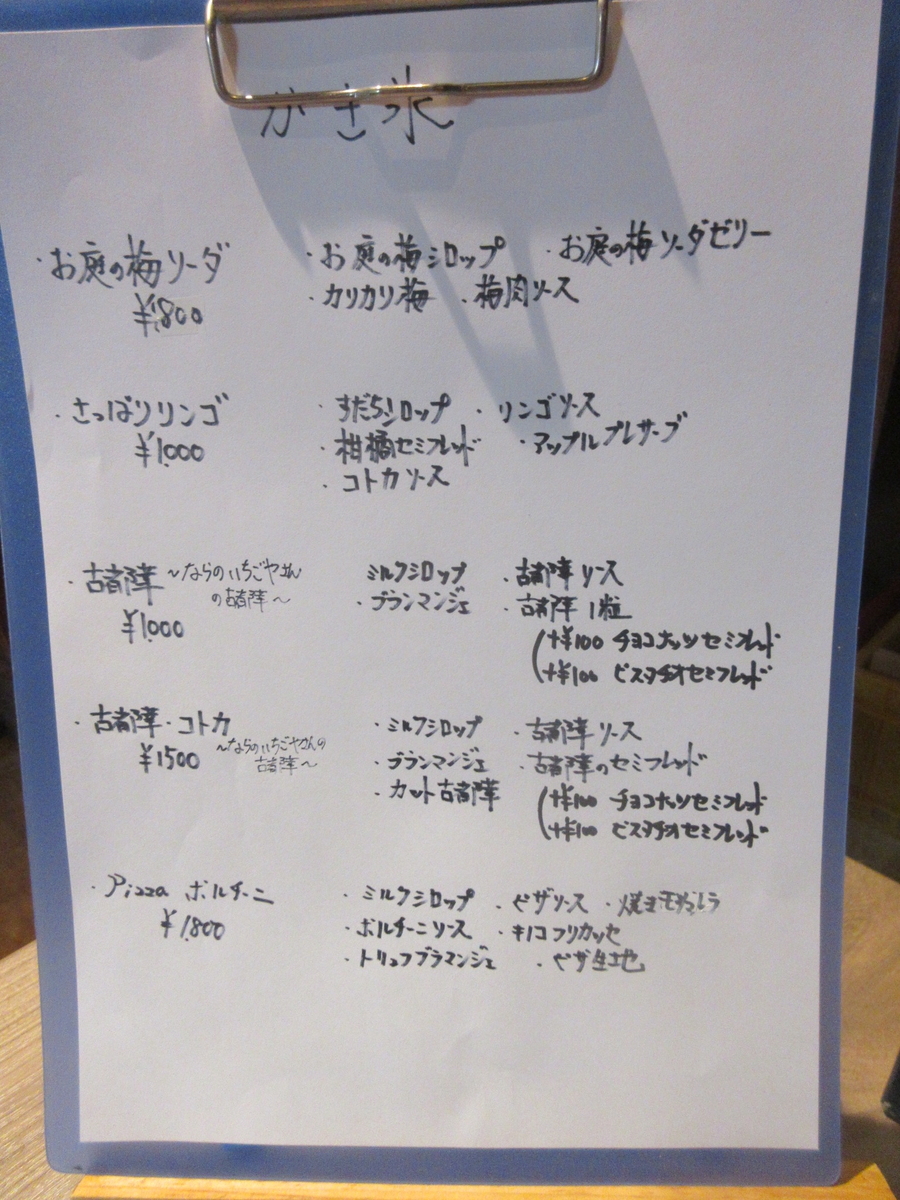 かき氷
・お庭の梅ソーダ ・お庭の梅シロップ ・お庭の梅ソーダゼリー
¥1,800 ・カリカリ梅 ・梅肉ソース
・さっぱりリンゴ ・すだちシロップ ・リンゴソース
¥1,000 ・柑橘セミフレッド ・アップルプレザーブ
・コトカソース
・古都華 〜ならのいちごやさん ミルクシロップ ・古都華ソース
の古都華〜 ・ブランマンジェ ・古都華1粒
¥1,000 (+¥100 チョコナッツセミフレッド
+¥100 ピスタチオセミフレッド
・古都華・コトカ ・ミルクシロップ ・古都華ソース
¥1500 〜ならのいちごやさんの ・ブランマンジェ ・古都華のセミフレッド
古都華〜 ・カット古都華 (+¥100 チョコナッツセミフレッド
+¥100 ピスタチオセミフレッド
・Pizza ポルチーニ ・ミルクシロップ ・ピザソース ・焼きモッツァレラ
¥1,800 ・ポルチーニソース ・キノコフリカッセ
・トリュフブラマンジェ ・ピザ生地